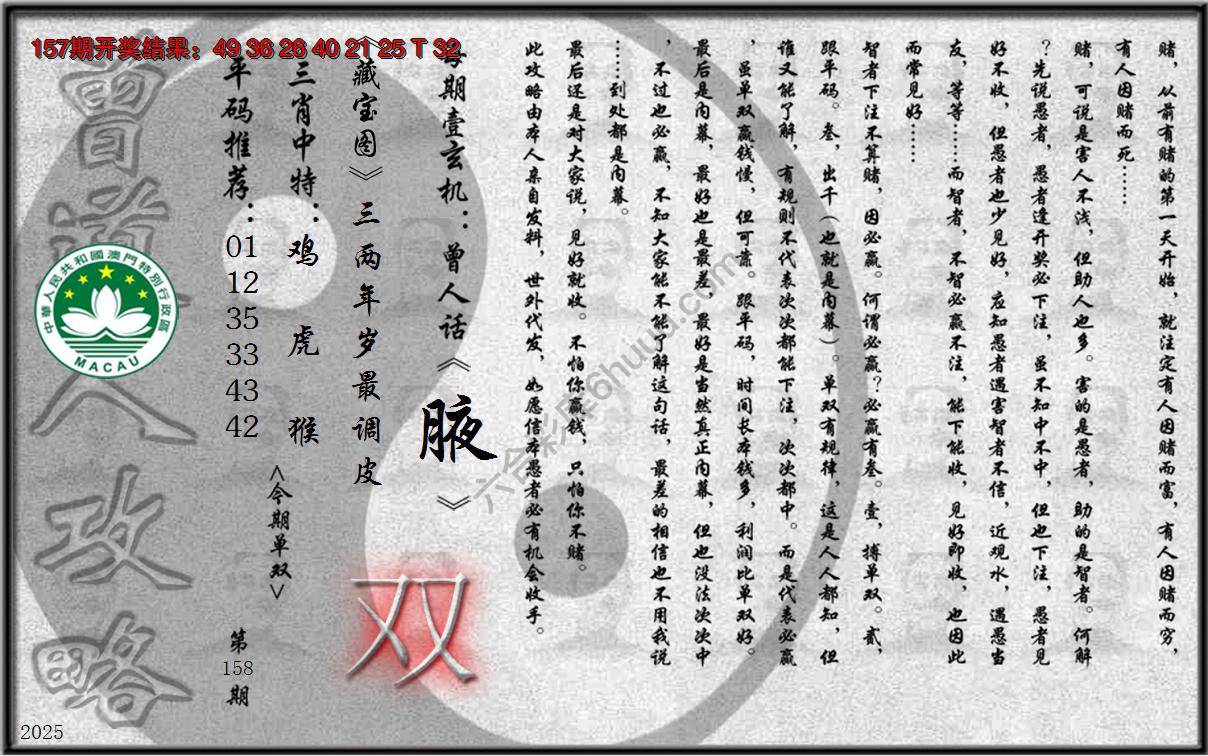 157期开奖结果：49 36 26 40 21 25 T 32
赌，从前有赌的第一天开始，就注定有人因赌而富，有人因赌而穷，
有人因赌而死……
赌，可说是害人不浅，但助人也多。害的是愚者，助的是智者。何解
？先说愚者，愚者逢开奖必下注，虽不知中不中，但也下注，愚者见
好不收，但愚者也少见好，应知愚者遇害智者不信，近观水，遇愚当
友，等等……而智者，不智必赢不注，能下能收，见好即收，也因此
而常见好……
智者下注不算赌，因必赢。何谓必赢？必赢有叁。壹，搏单双。贰，
跟平码。叁，出千（也就是内幕）。单双有规律，这是人人都知，但
谁又能了解，有规则不代表次次都能下注，次次都中。而是代表必赢
，虽单双赢钱慢，但可靠。跟平码，时间长本钱多，利润比单双好。
最后是内幕，最好也是最差，最好是当然真正内幕，但也没法次次中
，不过也必赢，不知大家能不能了解这句话，最差的相信也不用我说
……到处都是内幕。
最后还是对大家说，见好就收。不怕你赢钱，只怕你不赌。
此攻略由本人亲自发料，世外代发，如愿信本愚者必有机会收手。
每期壹玄机：曾人话《腋》
《藏宝图》三两年岁最调皮
双
三肖中特：鸡 虎 猴
<今期单双>
平码推荐：01 12 35 33 43 42
第158期
曾道人攻略
中華人民共和國澳門特別行政區
MACAU
2025
六合彩库6huuu.com